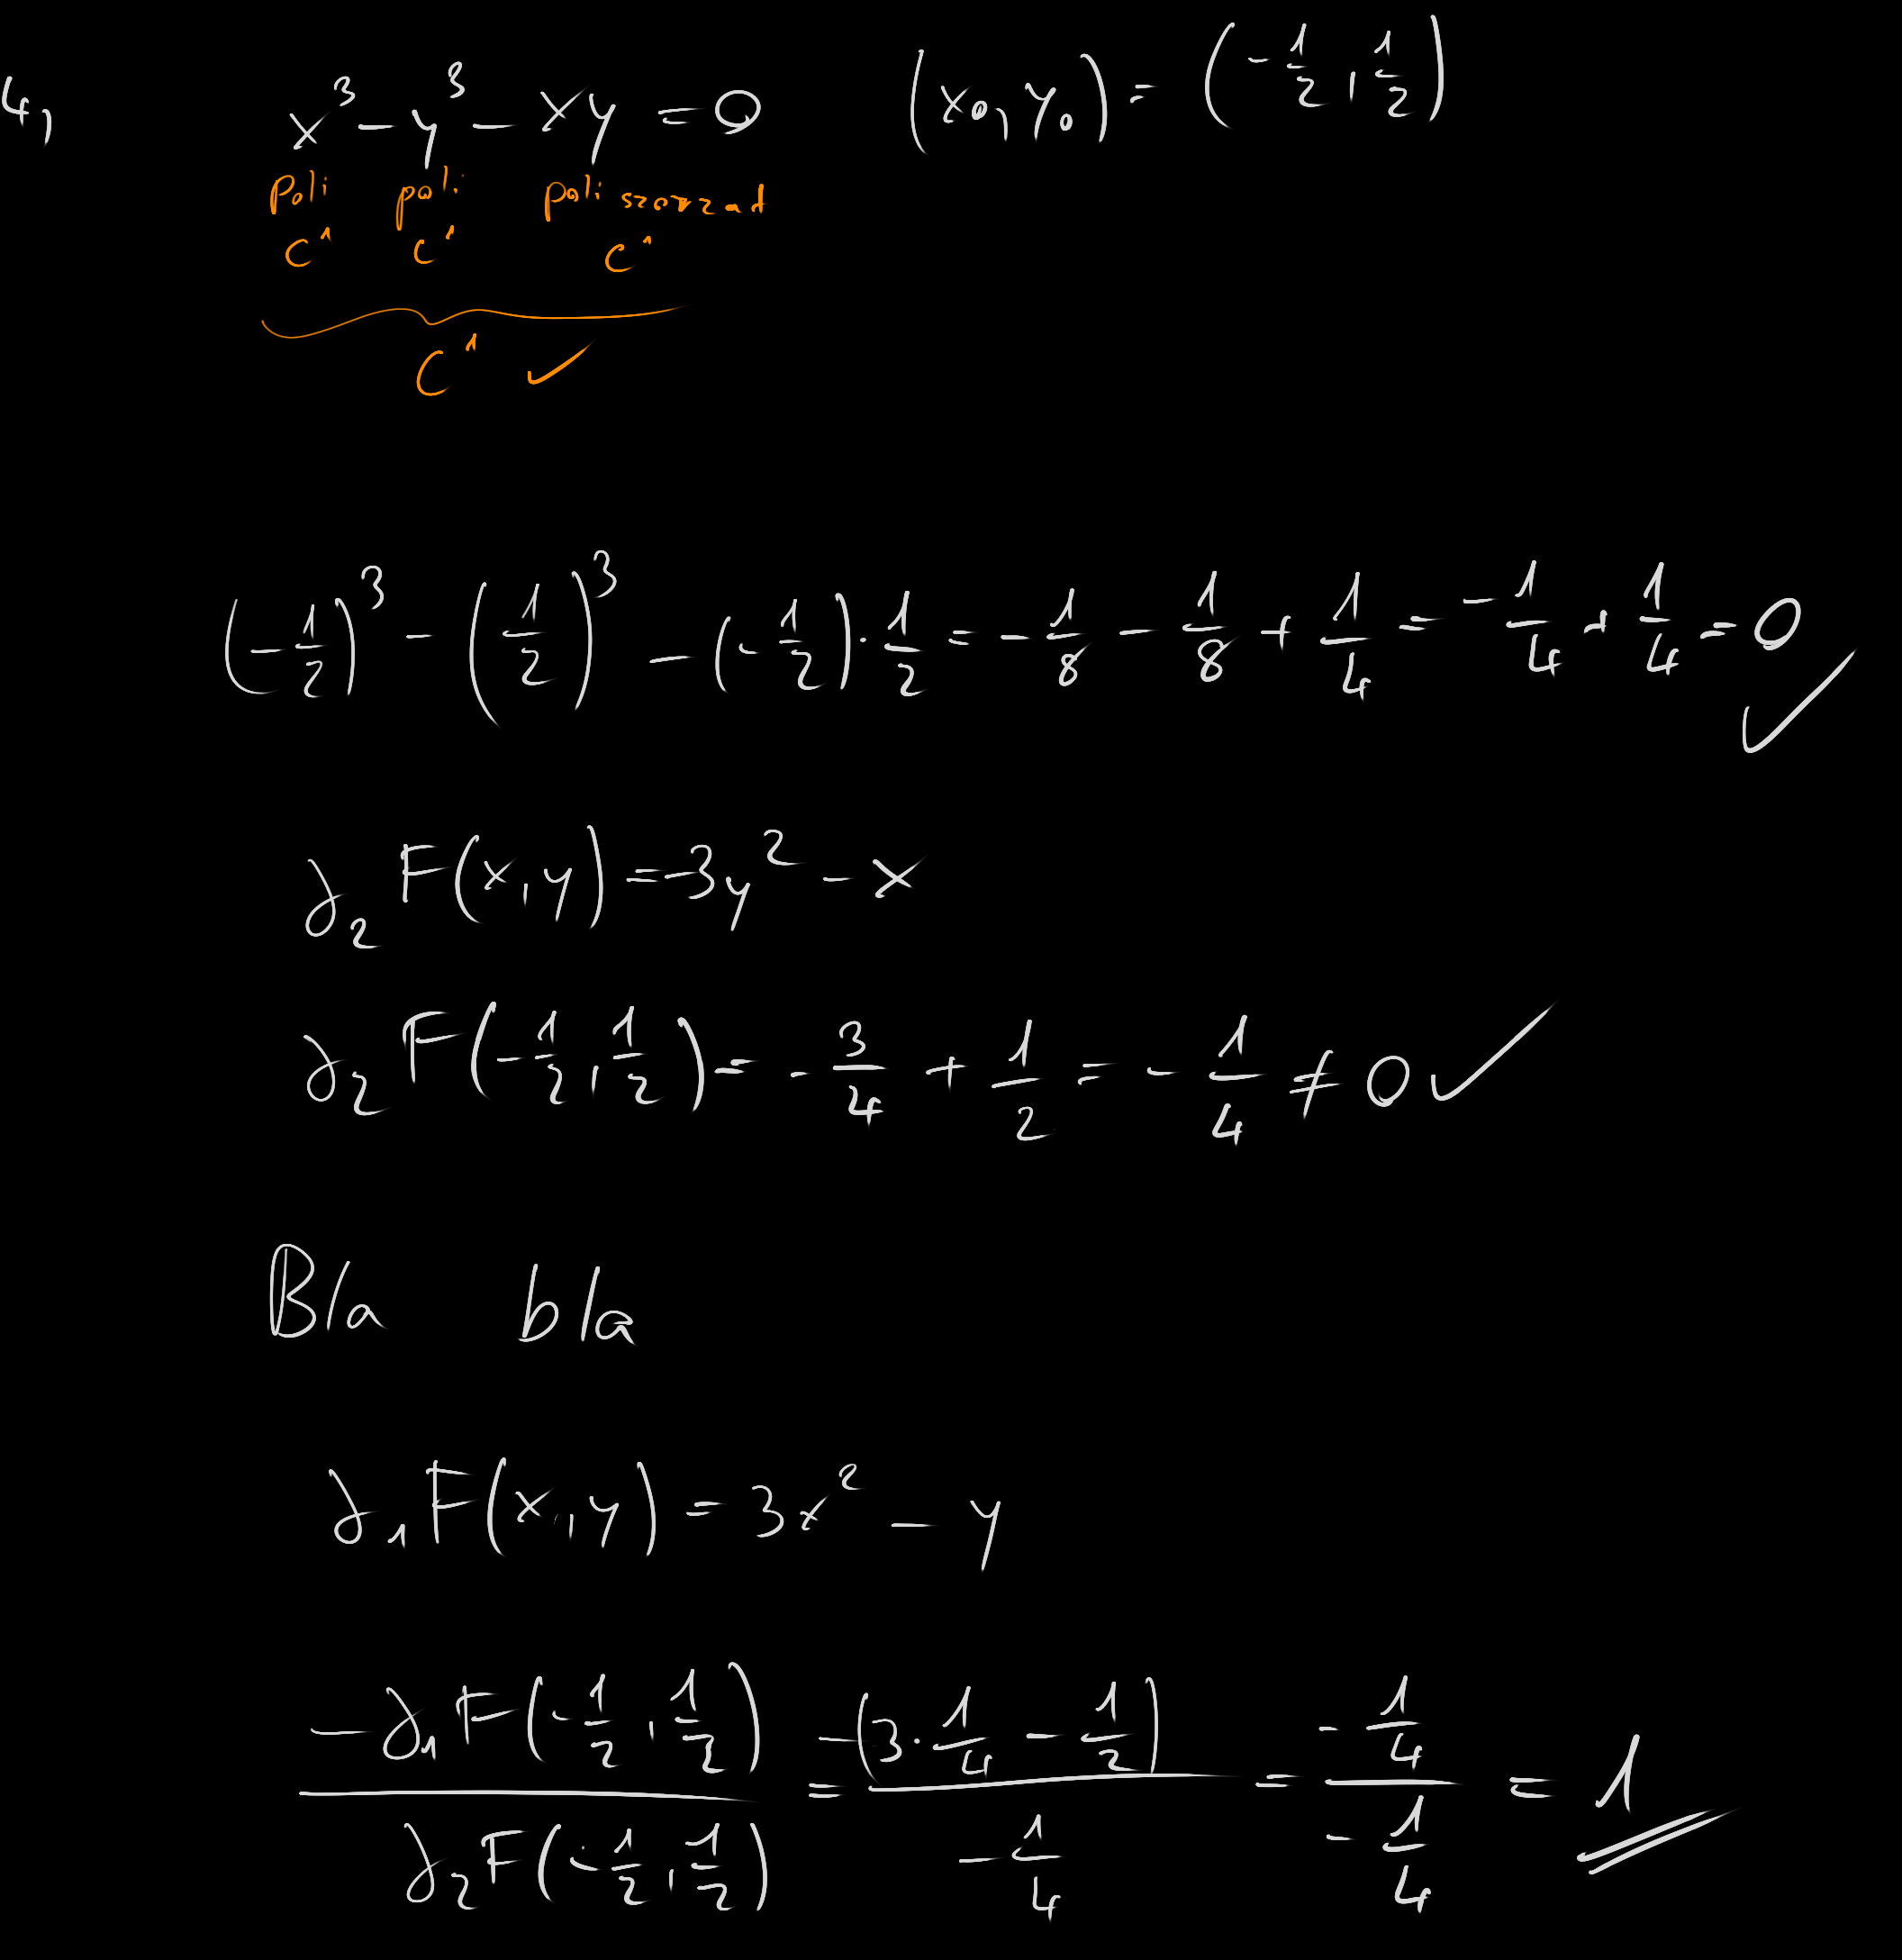 4, x³ - y³ - xy = 0 (x₀, y₀) = (-1/2, 1/2)
Poli poli poli szorzat
C¹ C¹ C¹
C¹ ✓
(-1/2)³ - (1/2)³ - (-1/2)·1/2 = -1/8 - 1/8 + 1/4 = -1/4 + 1/4 = 0 ✓
∂₂F(x,y) = -3y² - x
∂₂F(-1/2, 1/2) = -3/4 + 1/2 = -1/4 ≠ 0 ✓
Bla bla
∂₁F(x,y) = 3x² - y
-∂₁F(-1/2, 1/2) / ∂₂F(-1/2, 1/2) = -(3·1/4 - 1/2) / (-1/4) = (-1/4) / (-1/4) = 1